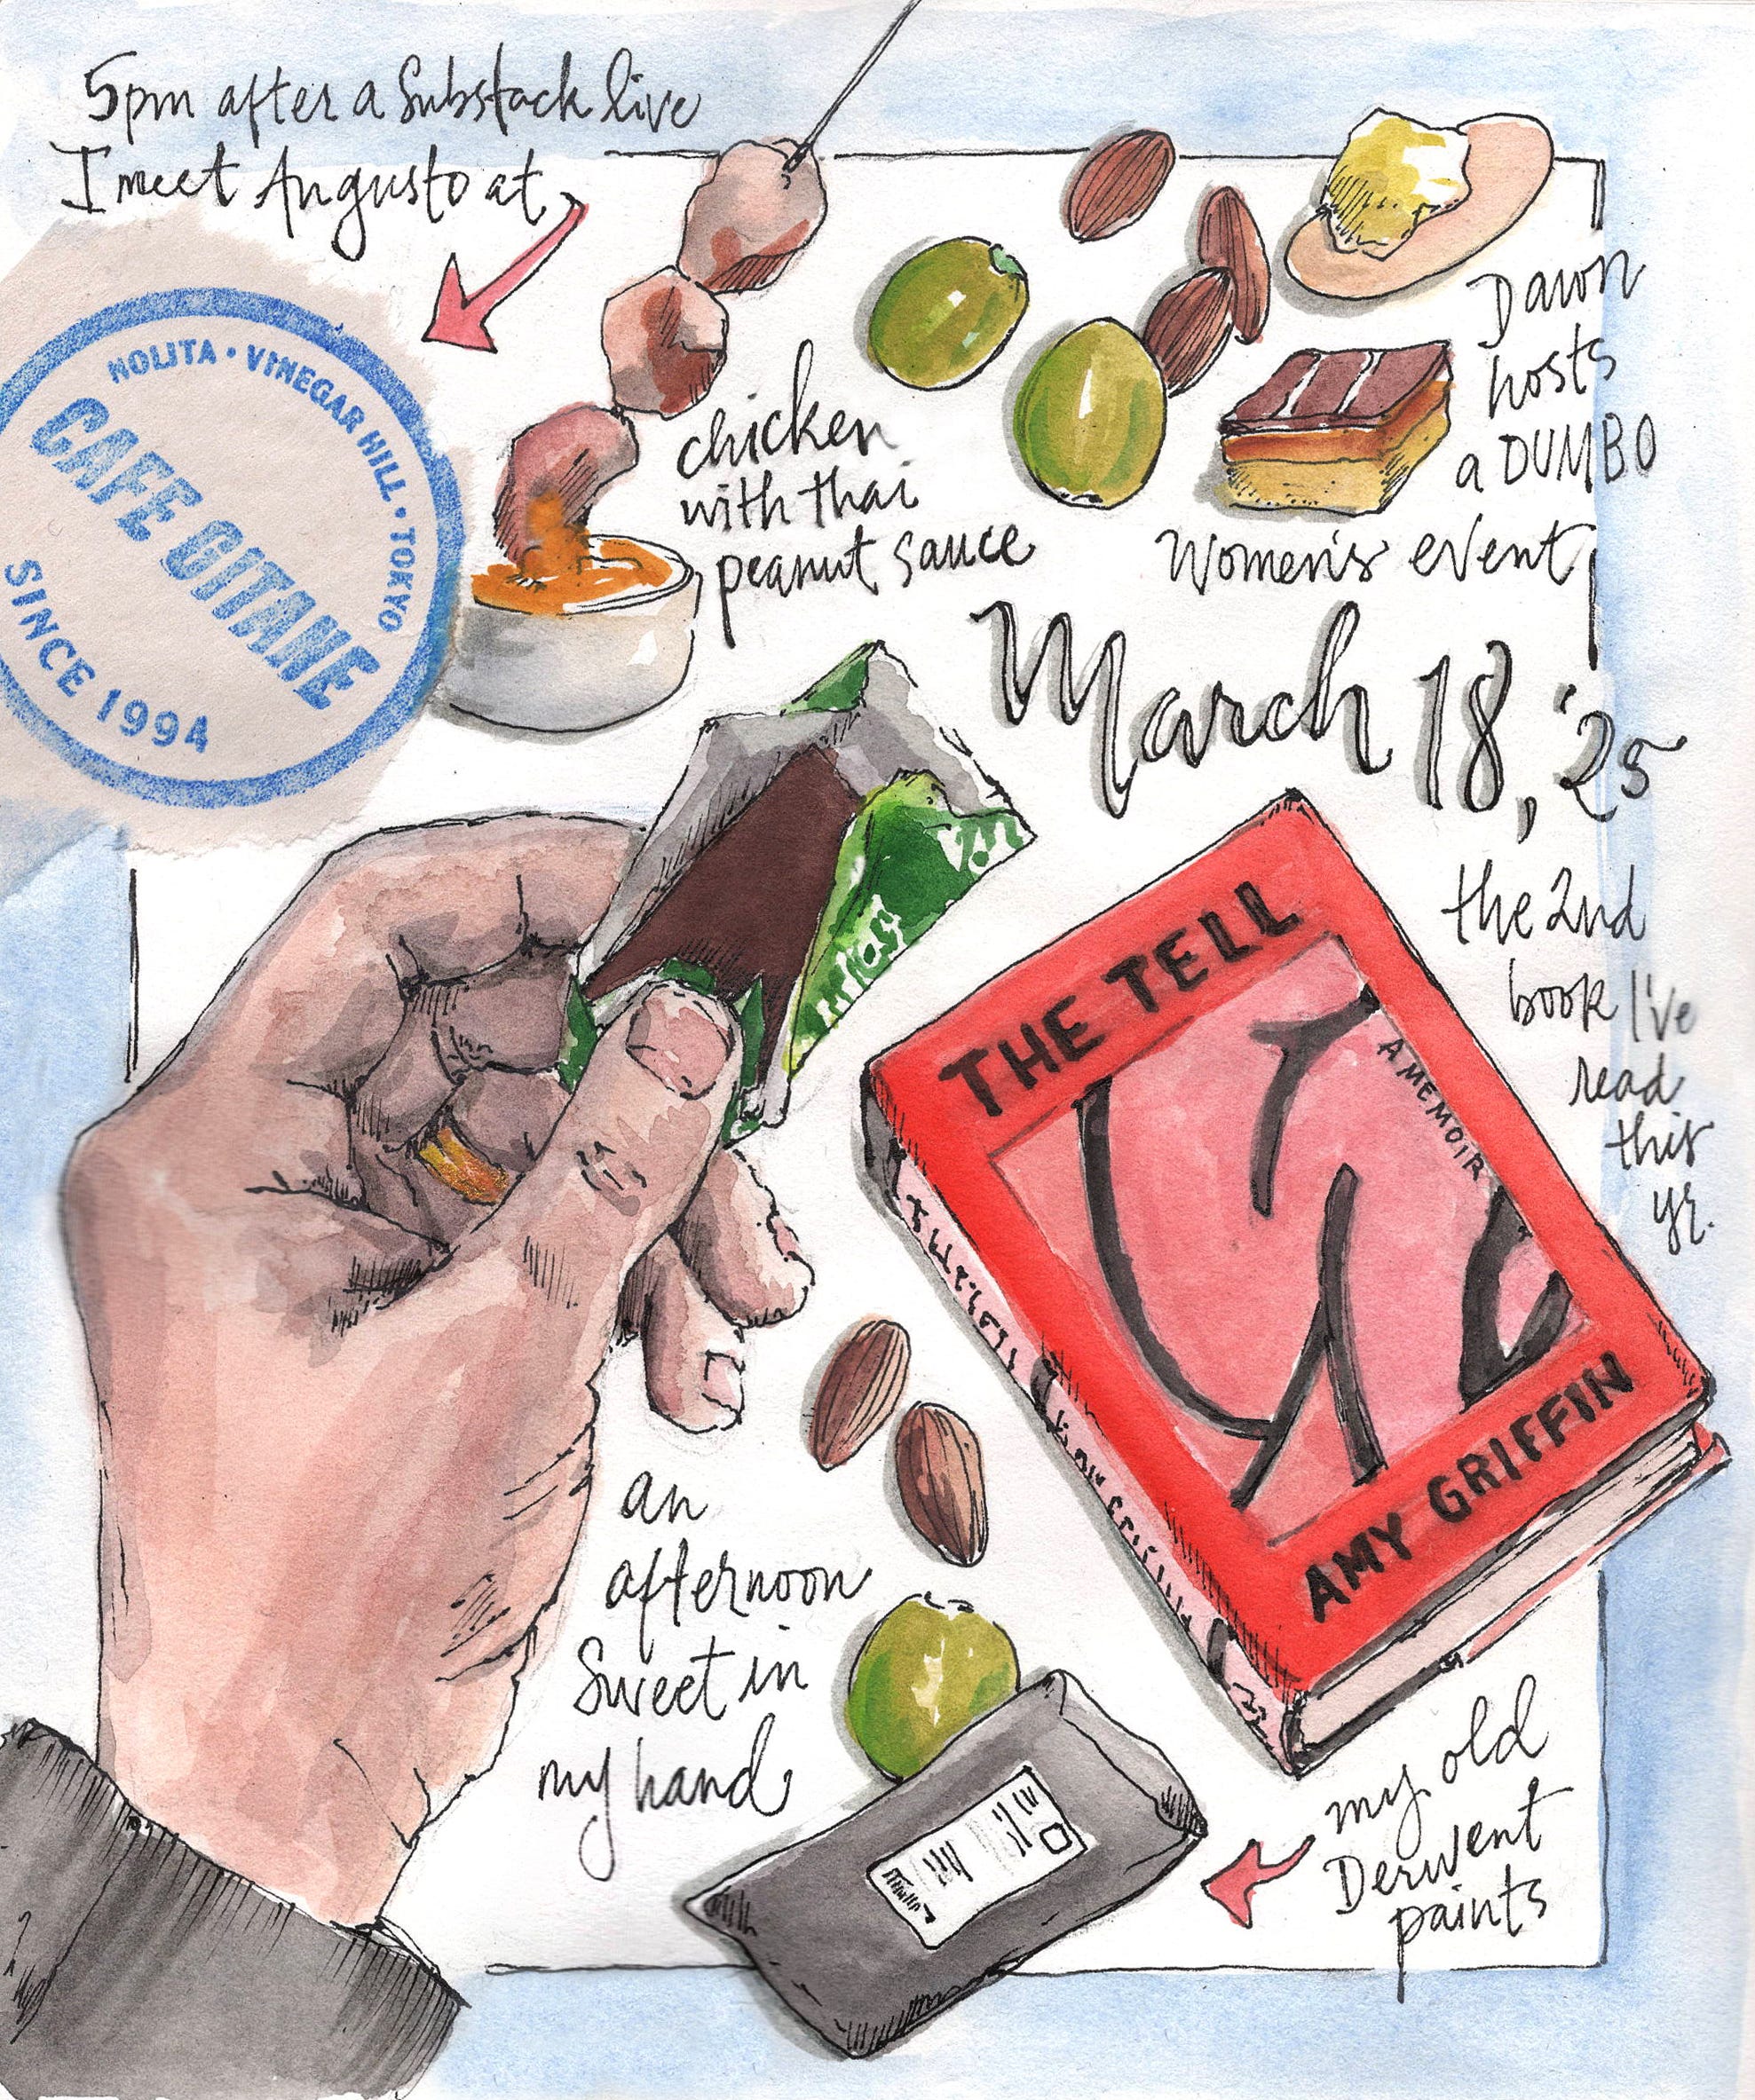 5pm after a Substack live
I meet Augusto at
NOLITA • VINEGAR HILL • TOKYO
CAFE GITANE
SINCE 1994
chicken
with thai
peanut sauce
Dawn
hosts
a DUMBO
Women's event
March 18, '25
the 2nd
book I've
read
this
yr.
THE TELL
A MEMOIR
AMY GRIFFIN
an
afternoon
Sweet in
my hand
my old
Derwent
paints